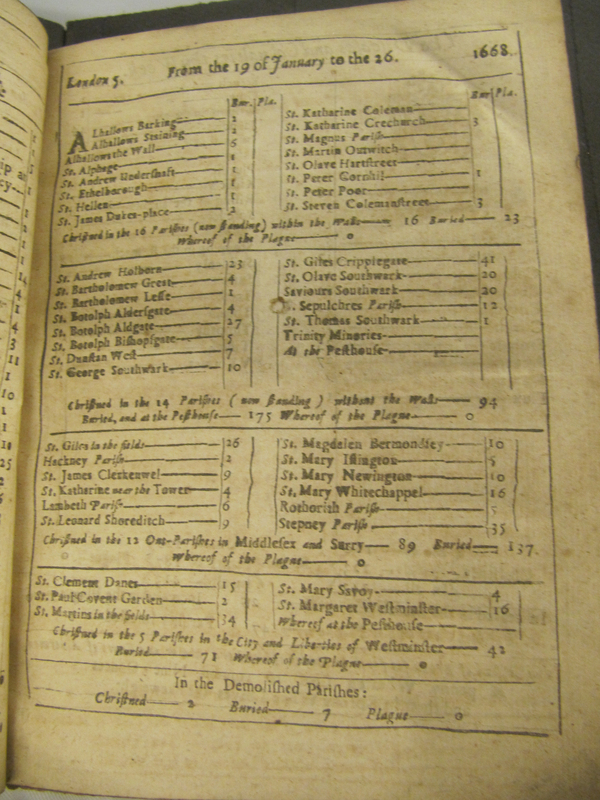 London 5. From the 19 of January to the 26. 1668
Bur. Pla.
Alhallows Barking 2
Alhallows Staining 2
Alhallows the Wall 6
St. Alphage 1
St. Andrew Undershaft 1
St. Ethelborough 1
St. Hellen 1
St. James Dukes-place 2
Bur Pla.
St. Katharine Coleman
St. Katharine Creechurch 3
St. Magnus Parish
St. Martin Outwitch
St. Olave Hartstreet
St. Peter Cornhil 1
St. Peter Poor
St. Steven Colemanstreet 3
Christned in the 16 Parishes (now standing) within the Walls 16 Buried 23
Whereof of the Plague 0
St. Andrew Holborn 23
St. Bartholomew Great 4
St. Bartholomew Lesse 1
St. Botolph Aldersgate 4
St. Botolph Aldgate 27
St. Botolph Bishopsgate 5
St. Dunstan West 7
St. George Southwark 10
St. Giles Cripplegate 41
St. Olave Southwark 20
Saviours Southwark 20
. Sepulchres Parish 12
St. Thomas Southwark 1
Trinity Minories
At the Pesthouse
Christned in the 14 Parishes (now standing) without the Walls 94
Buried, and at the Pesthouse 175 Whereof of the Plague 0
St. Giles in the fields 26
Hackney Parish 2
St. James Clerkenwel 9
St. Katharine near the Tower 4
Lambeth Parish 6
St. Leonard Shoreditch 9
St. Magdalen Bermondsey 10
St. Mary Islington 5
St. Mary Newington 10
St. Mary Whitechappel 16
Rothorith Parish 5
Stepney Parish 35
Christned in the 12 Out-Parishes in Middlesex and Surry 89 Buried 137.
Whereof of the Plague 0
St. Clement Danes 15
St. Paul Covent Garden 2
St. Martins in the fields 34
St. Mary Savoy 4
St. Margaret Westminster 16
Whereof at the Pesthouse
Christned in the 5 Parishes in the City and Liberties of Westminster 42
Buried 71 Whereof of the Plague 0
In the Demolished Parishes:
Christned 2 Buried 7 Plague 0